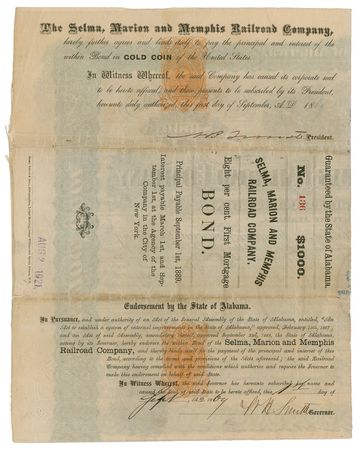 The Selma, Marion and Memphis Railroad Company,
hereby further agrees and binds itself to pay the principal and interest of the
within Bond in GOLD COIN of the United States.
In Witness Whereof, the said Company has caused its corporate seal
to be hereto affixed, and these presents to be subscribed by its President,
hereunto duly authorized, this first day of September, A.D. 186
President.
Guaranteed by the State of Alabama.
No. 136 $1000.
SELMA, MARION AND MEMPHIS
RAILROAD COMPANY.
Eight per cent First Mortgage
BOND.
Principal Payable September 1st, 1889.
Interest payable March 1st, and Sep-
tember 1st, at the Agency of the
Company in the City of
New York.
AUG 2 1921
Endorsement by the State of Alabama.
In Pursuance, and under authority of an Act of the General Assembly of the State of Alabama, entitled, "An
Act to establish a system of internal improvement in the State of Alabama," approved, February 19th, 1867;
and an Act of said Assembly, amendatory thereof, approved September 22d, 1868, the State of Alabama,
acting by its Governor, hereby endorses the within Bond of the Selma, Marion and Memphis
Railroad Company, and thereby binds itself for the payment of the principal and interest of this
Bond, according to the terms and provisions of the Acts aforesaid; the said Railroad
Company having complied with the conditions which authorize and require the Governor to
make this endorsement on behalf of said State.
In Witness Whereof, the said Governor has hereunto subscribed his name and
caused the seal of said State to be hereto affixed, this 1 day of
Sept 1869
W H Smith
Governor.